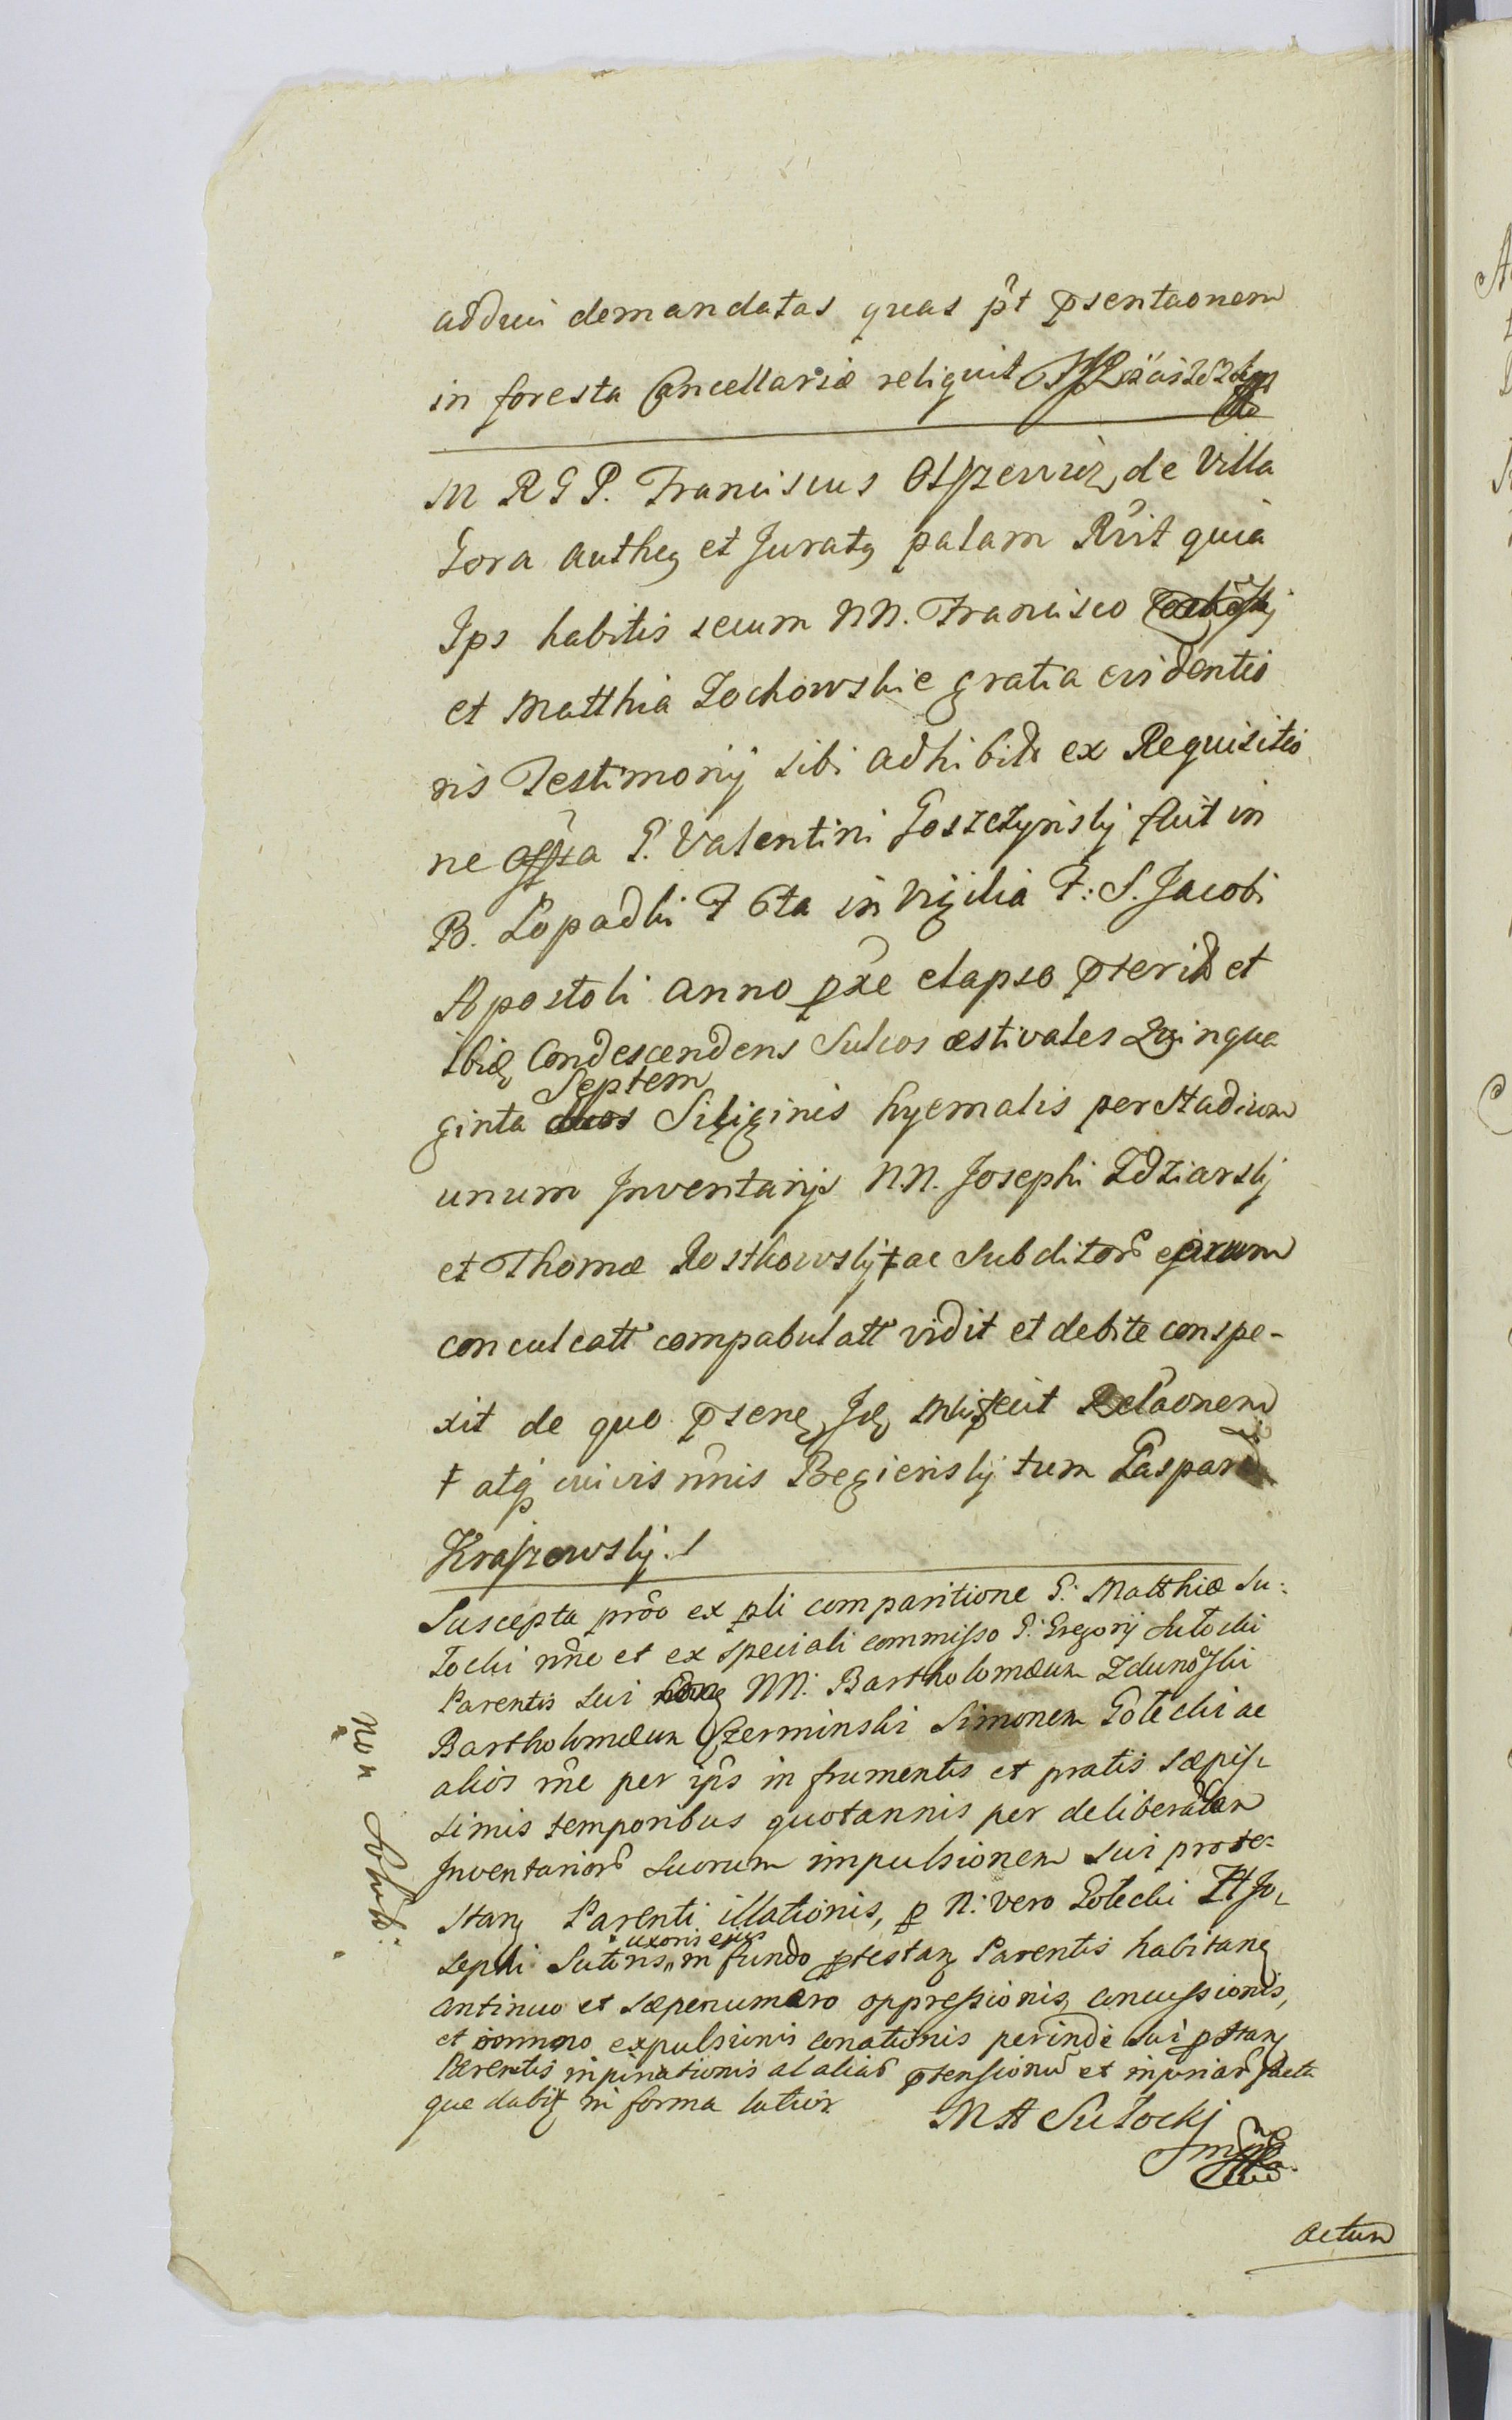 adduci demandatas quas p̂t p̄sentaonem
in foresta Cancellariæ reliquit
M R G P. Franciscus Olszewicz de Villa
Gora authq et Juratq palam R̂rit quia
Ips habitis secum NN. Francisco
et Matthia Zochowskie gratia evidentio
ris Testimonij sibi adhibit ex Requisitio
ne P. Valentini Goszczynskj fuit in
B. Lopadki F 6ta in Vigilia F: S. Jacobi
Apostoli anno p̱xe elapso p̄terit et
ibidq Condescendens Sulcos æstivales Quinqua
Septem
ginta duos Siliginis hyemalis per stadium
unum Inventarijs N.N. Josephi Zdziarskj
et Thomæ Rostkowskj † ac Subditor
conculcatt compabulatt vidit et debite conspe-
xit de quo p̄senq Jdq Relâonem
† atq̱ cuivis n̂nis Begienskj tum Gaspari
Kraszewskj./
Suscepta prôo ex p̱li comparitione G: Matthiæ Su:
tocki n̂ne et ex speciali commisso G: Gregorij Sutocki
Parentis sui NN: Bartholomæum Zdunoski
Bartholomæum Czerminski Simonem Golecki ac
alios r̂ne per ip̂s in frumentis et pratis sæpis
simis temporibus quotannis per deliberatam
Inventarior suorum impulsionem sui prote=
stanq Parenti illationis, p̱ N: vero Golecki Jo
uxoris ejus
sephi Sutoris „ in fundo p̱testanq Parentis habitanq
continuo et sæpenumero oppressionis, concussionis,
et omnino expulsionis conationis perinde sui p̱ttanq
Parentis inpinationis al aliar p̄tensionu et injuriar facta
que dabit in forma latior
MA Sutockj
actum
Non Solvit.